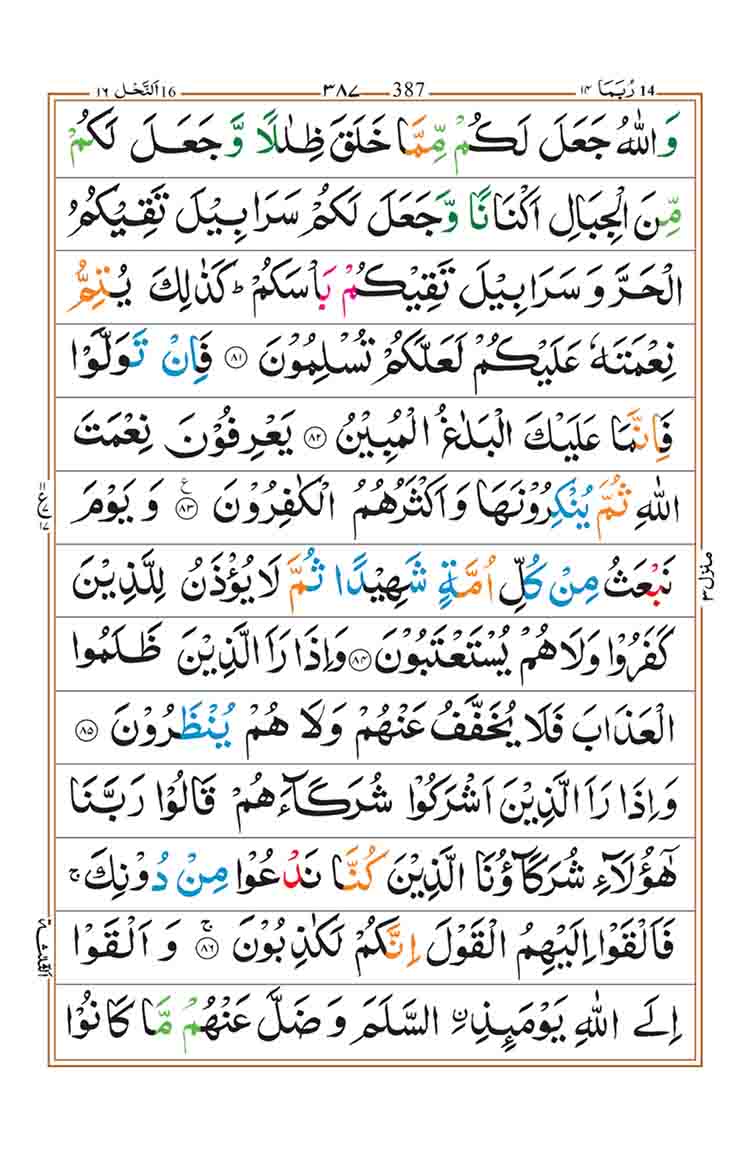 16 اَلنَّحْل ١٦ ٣٨٧ 387 14 رُبَمَا ١٤
وَاللّٰهُ جَعَلَ لَكُمْ مِّمَّا خَلَقَ ظِلٰلًا وَّ جَعَلَ لَكُمْ
مِّنَ الْجِبَالِ اَكْنَانًا وَّجَعَلَ لَكُمْ سَرَابِيْلَ تَقِيْكُمُ
الْحَرَّ وَ سَرَابِيْلَ تَقِيْكُمْ بَاْسَكُمْ ؕ كَذٰلِكَ يُتِمُّ
نِعْمَتَهٗ عَلَيْكُمْ لَعَلَّكُمْ تُسْلِمُوْنَ ٨١ فَاِنْ تَوَلَّوْا
فَاِنَّمَا عَلَيْكَ الْبَلٰغُ الْمُبِيْنُ ٨٢ يَعْرِفُوْنَ نِعْمَتَ
اللّٰهِ ثُمَّ يُنْكِرُوْنَهَا وَاَكْثَرُهُمُ الْكٰفِرُوْنَ ٨٣ ع وَ يَوْمَ
نَبْعَثُ مِنْ كُلِّ اُمَّةٍ شَهِيْدًا ثُمَّ لَا يُؤْذَنُ لِلَّذِيْنَ
كَفَرُوْا وَلَا هُمْ يُسْتَعْتَبُوْنَ ٨٤ وَاِذَا رَاَ الَّذِيْنَ ظَلَمُوا
الْعَذَابَ فَلَا يُخَفَّفُ عَنْهُمْ وَلَا هُمْ يُنْظَرُوْنَ ٨٥
وَاِذَا رَاَ الَّذِيْنَ اَشْرَكُوْا شُرَكَآءَهُمْ قَالُوْا رَبَّنَا
هٰٓؤُلَآءِ شُرَكَآؤُنَا الَّذِيْنَ كُنَّا نَدْعُوْا مِنْ دُوْنِكَ ۚ
فَاَلْقَوْا اِلَيْهِمُ الْقَوْلَ اِنَّكُمْ لَكٰذِبُوْنَ ٨٦ ۚ وَ اَلْقَوْا
اِلَى اللّٰهِ يَوْمَىِٕذِ ۨ السَّلَمَ وَ ضَلَّ عَنْهُمْ مَّا كَانُوْا
منزل ٣